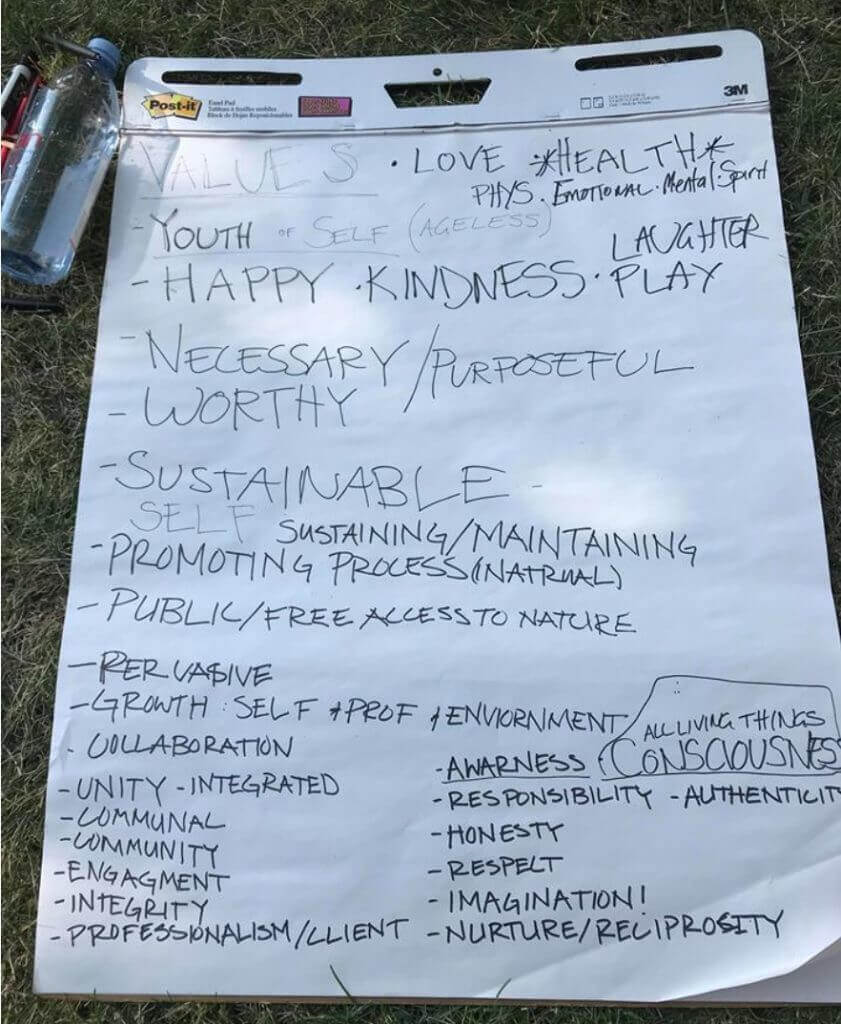 Post-it
Easel Pad
3M
VALUES · LOVE *HEALTH*
PHYS. EMOTIONAL · Mental · Spirit
- YOUTH OF SELF (AGELESS)
LAUGHTER
- HAPPY · KINDNESS · PLAY
- NECESSARY/PURPOSEFUL
- WORTHY
- SUSTAINABLE -
SELF SUSTAINING/MAINTAINING
- PROMOTING PROCESS (NATRUAL)
- PUBLIC/FREE ACCESS TO NATURE
- PERVASIVE
- GROWTH : SELF + PROF + ENVIORNMENT
ALL LIVING THINGS
CONSCIOUSNES
- COLLABORATION
- UNITY - INTEGRATED
- COMMUNAL
- COMMUNITY
- ENGAGMENT
- INTEGRITY
- PROFESSIONALISM/CLIENT
- AWARNESS
- RESPONSIBILITY - AUTHENTICIT
- HONESTY
- RESPECT
- IMAGINATION!
- NURTURE/RECIPROSITY